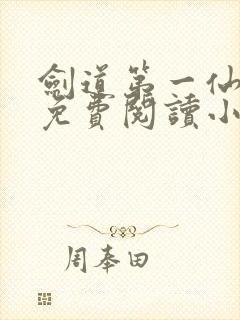 劍道第一仙
免費閱讀小
周奉田